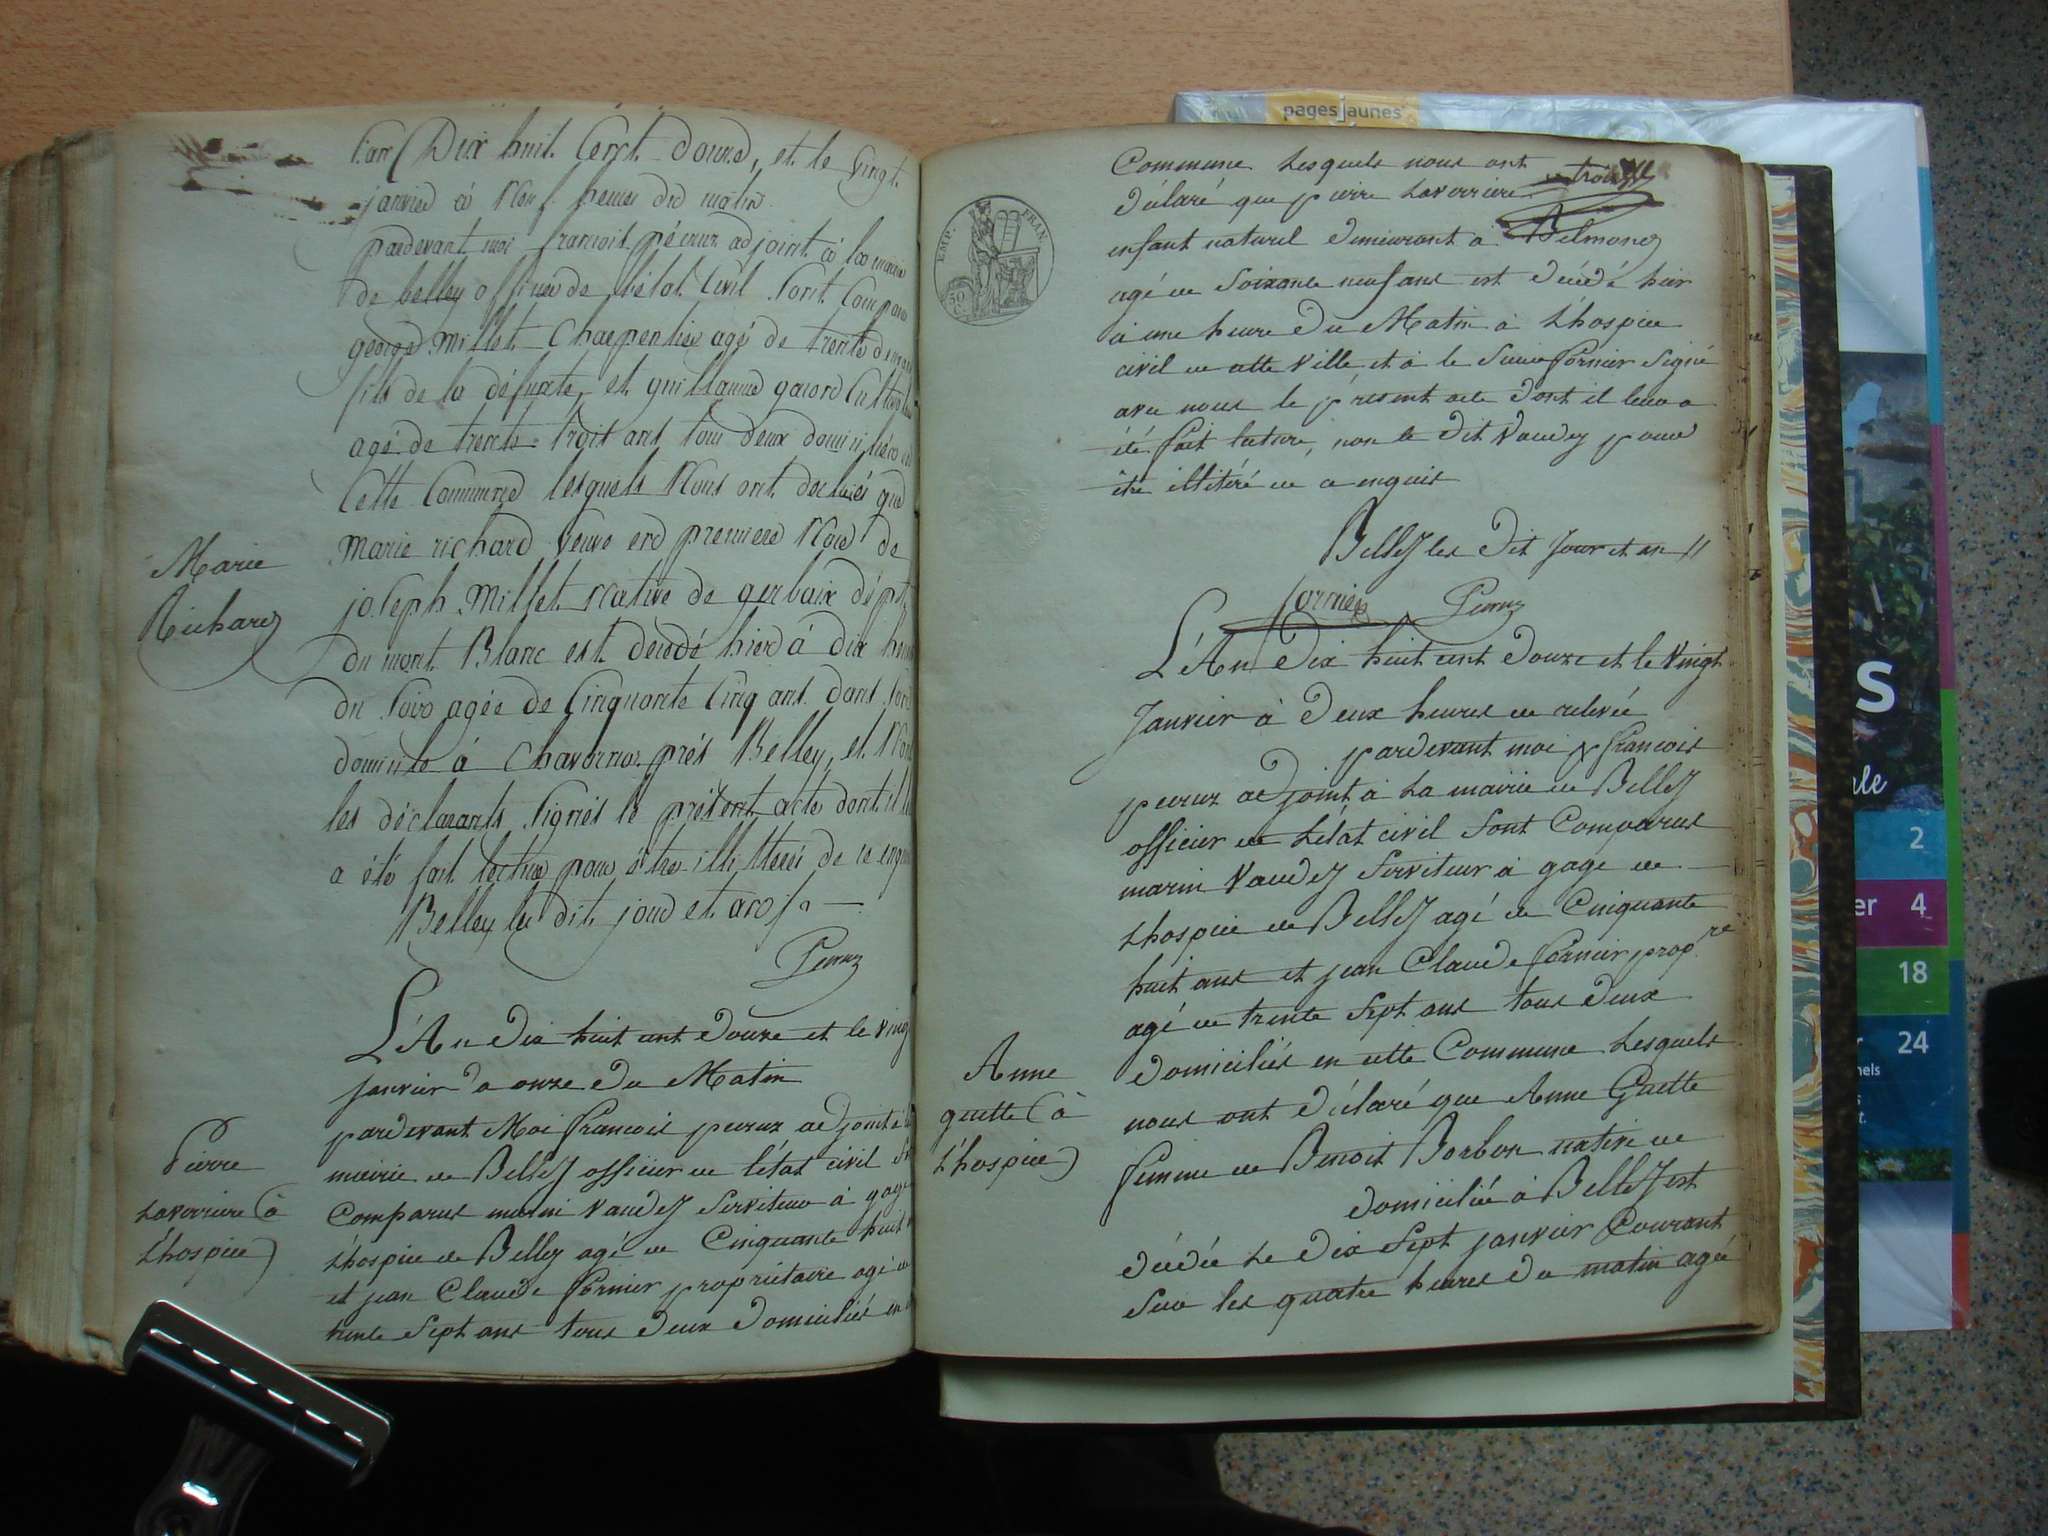 L'an Dix huit Cent Douze, et le Vingt
janvier à Neuf heures du matin
pardevant moi francois pécruz adjoint à la mairie
de belley officier de l'état Civil Sont Comparu
george Millet Charpentier agé de trente
fils de la défunte, et guillaume
agé de trente trois ans tous deux domiciliés
Cette Commune lesquels Nous ont déclarés que
Marie richard veuve en premiere Noce de
Marie
Richard
joseph Millet Native de gerbaix dépt
du mont Blanc est décédé hier à dix heures
du Soir agée de Cinquante Cinq ans dans son
domicile à Chavornas près Belley, et Non
les déclarants Signés le présent acte dont il
a été fait lecture pour être illitterés de ce enquis
Belley les dit jour et an
Pecruz
L'An Dix huit cent Douze et le Vingt
janvier à onze Du Matin
pardevant Moi francois pecruz adjoint à la
mairie de Belley officier de l'état civil
Pierre
Laverriere (à
L'hospice)
Comparus marin Vaudey Serviteur à gage
L'hospice de Belley agé de Cinquante huit
et jean Claude fornier propriétaire agé de
trente Sept ans tous Deux Domiciliés en
pages jaunes
EMP. FRAN.
50
C.
Commune Lesquels nous ont
Déclaré que pierre Laverriere trouvé
enfant naturel Demeurant à Belmond
agé de Soixante neuf ans est Décédé hier
à une heure Du Matin à L'hospice
civil de cette Ville et à le Sieur fornier Signé
avec nous le present acte Dont il leur a
été fait lecture, non le Dit Vaudey pour
être illitéré de ce enquis
Belley les Dit Jour et an //
fornier Pecruz
L'An Dix huit cent Douze et le Vingt
Janvier à Deux heures de relevée
pardevant moi francois
pecruz adjoint à La mairie de Belley
officier de L'état civil Sont Comparus
marin Vaudey Serviteur à gage de
L'hospice de Belley agé de Cinquante
huit ans et jean Claude fornier prop.re
agé de trente Sept ans tous Deux
Anne
guette (à
L'hospice)
Domiciliés en cette Commune Lesquels
nous ont Déclaré que Anne Guette
femme de Benoit Borbon native de
Domiciliée à Belley est
Décédée Le Dix Sept janvier Courant
Sur les quatre heures Du matin agée
S
ale
2
er 4
18
24